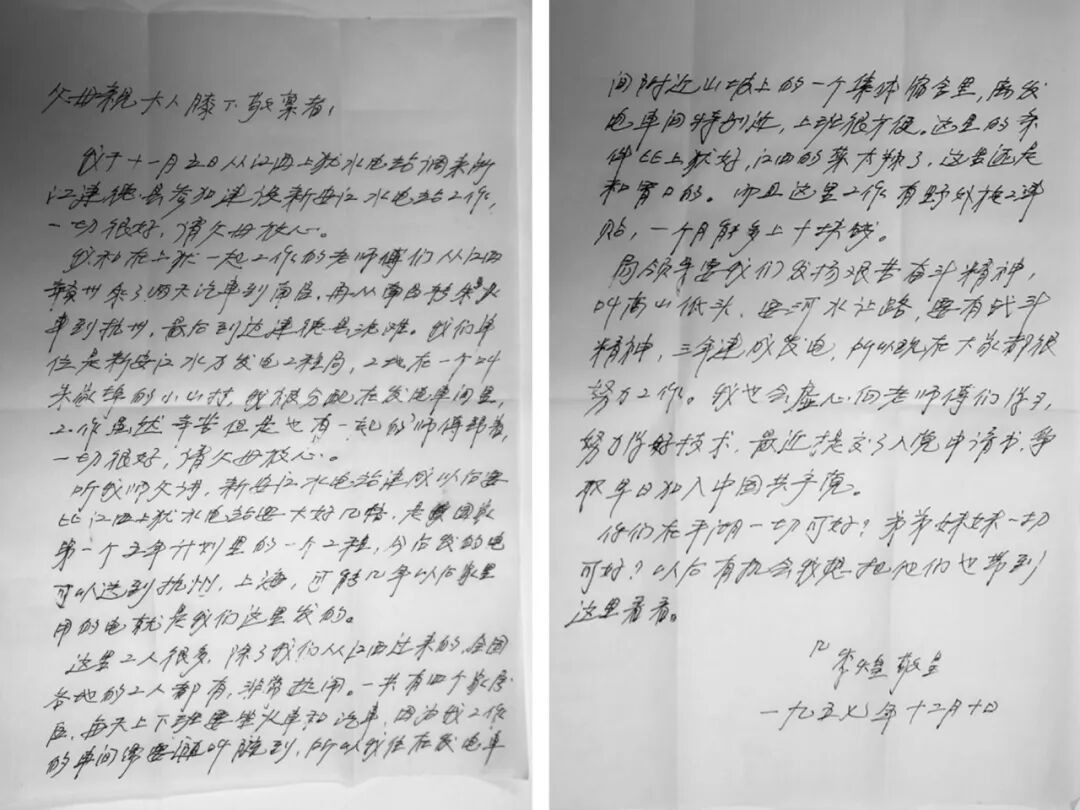 父母亲大人膝下敬禀者：
我于十一月五日从江西上犹水电站调来浙
江建德县参加建设新安江水电站工作，
一切很好，请父母放心。
我和在上犹一起工作的老师傅们从江西
赣州乘了两天汽车到南昌，再从南昌转乘火
车到杭州，最后到达建德县洋溪。我们单
位是新安江水力发电工程局，工地在一个叫
朱家埠的小山村，我被分配在发电车间里，
工作虽然辛苦但是也有一起的师傅帮着，
一切很好，请父母放心。
听我师父讲，新安江水电站建成以后要
比江西上犹水电站要大好几倍，是我国家
第一个五年计划里的一个工程，今后发的电
可以送到杭州，上海，可能几年以后家里
用的电就是我们这里发的。
这里工人很多，除了我们从江西过来的，全国
各地的工人都有，非常热闹。一共有四个家属
区，每天上下班要坐火车和汽车，因为我工作
的车间需要随叫随到，所以我住在发电车
间附近山坡上的一个集体宿舍里，离发
电车间特别近，上班很方便。这里的条
件比上犹好，江西的菜太辣了，这里还是
和胃口的。而且这里工作有野外施工津
贴，一个月能多上十块钱。
局领导要我们发扬艰苦奋斗精神，
叫高山低头，要河水让路，要有战斗
精神，三年建成发电，所以现在大家都很
努力工作。我也会虚心向老师傅们学习，
努力学好技术，最近提交了入党申请书，争
取早日加入中国共产党。
你们在平湖一切可好？弟弟妹妹一切
可好？以后有机会我想把他们也带到
这里看看。
儿 李煌敬呈
一九五七年十二月十日